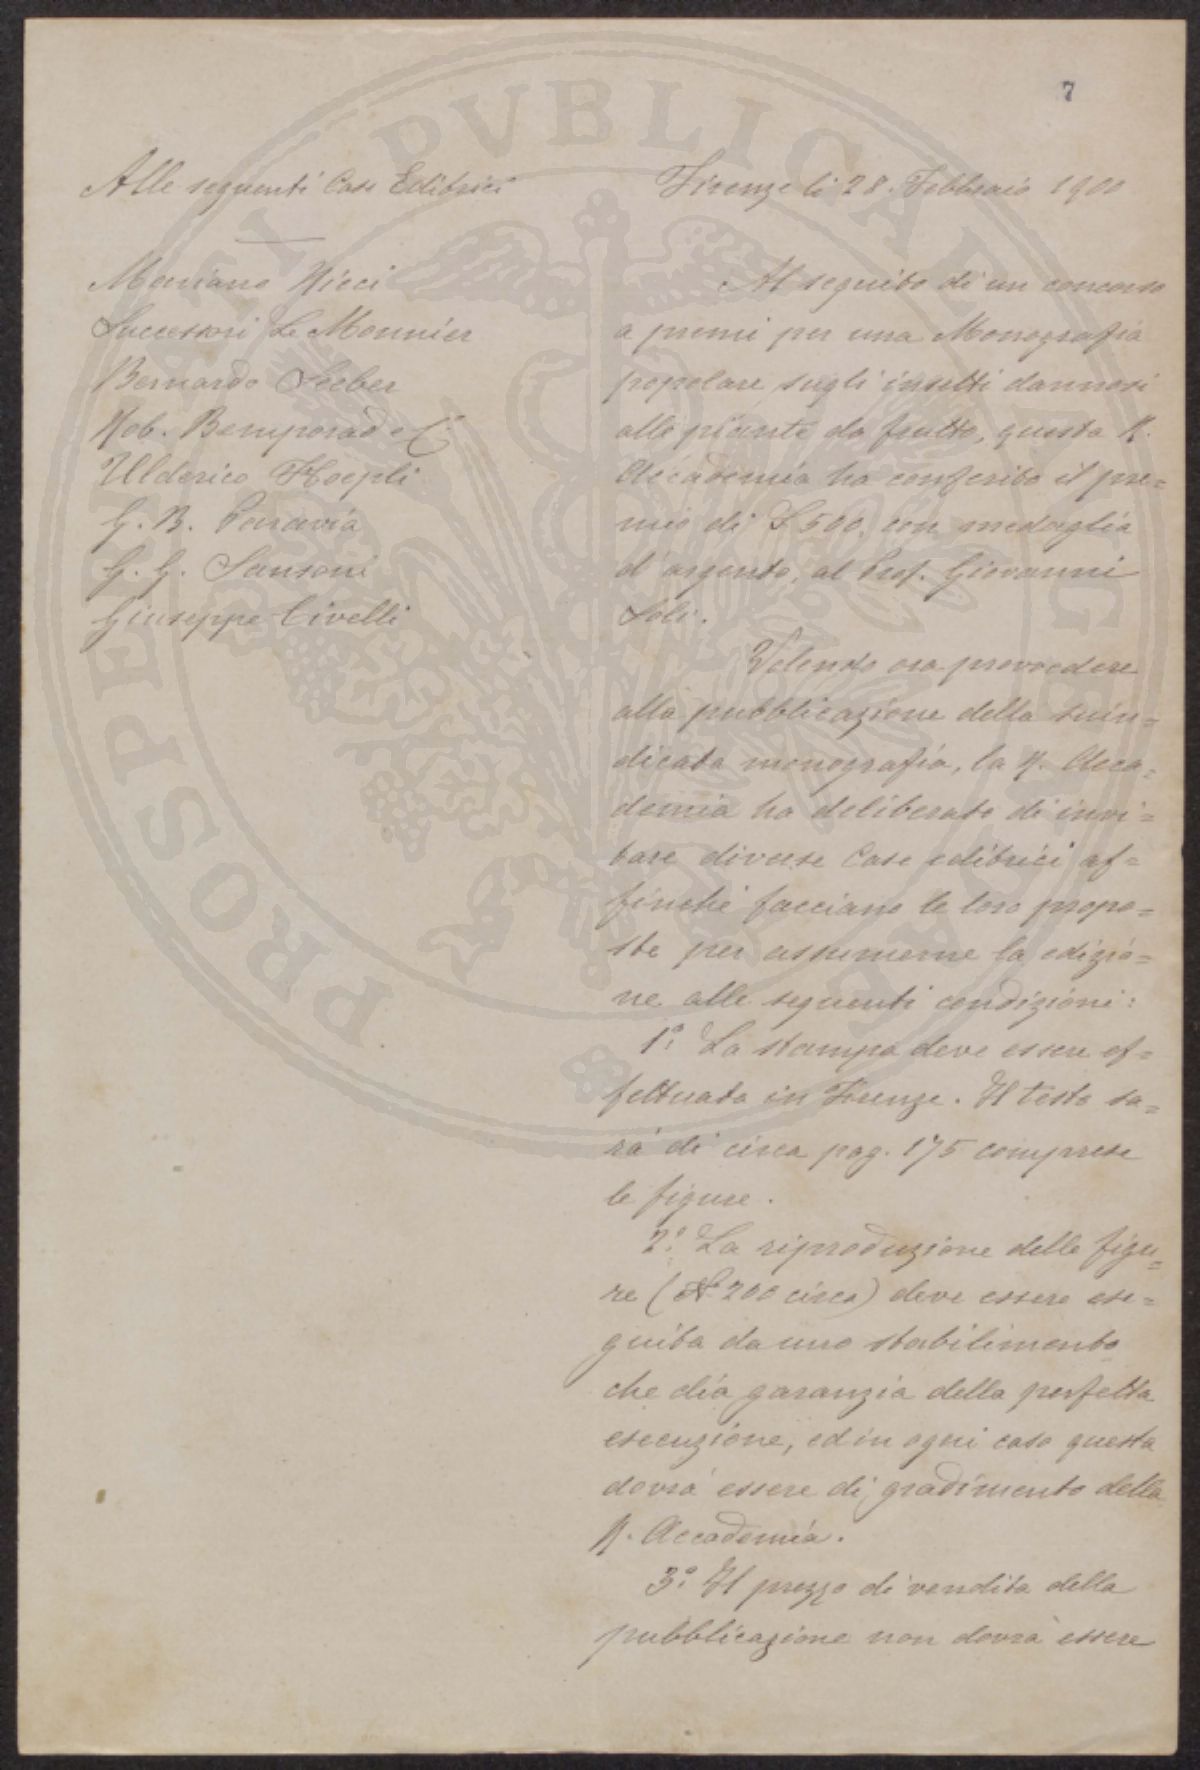 7
Alle seguenti Case Editrici
Mariano Ricci
Successori Le Monnier
Bernardo Seeber
Rob. Bemporad e C.
Ulderico Hoepli
G. B. Paravia
G. G. Sansoni
Giuseppe Civelli
Firenze li 28 Febbraio 1900
Al seguito di un concorso
a premi per una Monografia
popolare sugli insetti dannosi
alle piante da frutto, questa R.
Accademia ha conferito il pre=
mio di £ 500. con medaglia
d'argento, al Prof. Giovanni
Soli.
Volendo ora provvedere
alla pubblicazione della suin=
dicata monografia, la R. Acca=
demia ha deliberato di invi=
tare diverse Case editrici af=
finchè facciano le loro propo=
ste per assumerne la edizio=
ne alle seguenti condizioni:
1.° La stampa deve essere ef=
fettuata in Firenze. Il testo sa=
rà di circa pag. 175 comprese
le figure.
2.° La riproduzione delle figu=
re (N° 200 circa) deve essere ese=
guita da uno stabilimento
che dia garanzia della perfetta
esecuzione, ed in ogni caso questa
dovrà essere di gradimento della
R. Accademia.
3.° Il prezzo di vendita della
pubblicazione non dovrà essere
PROSPERITATI PVBLICAE AVGENDAE